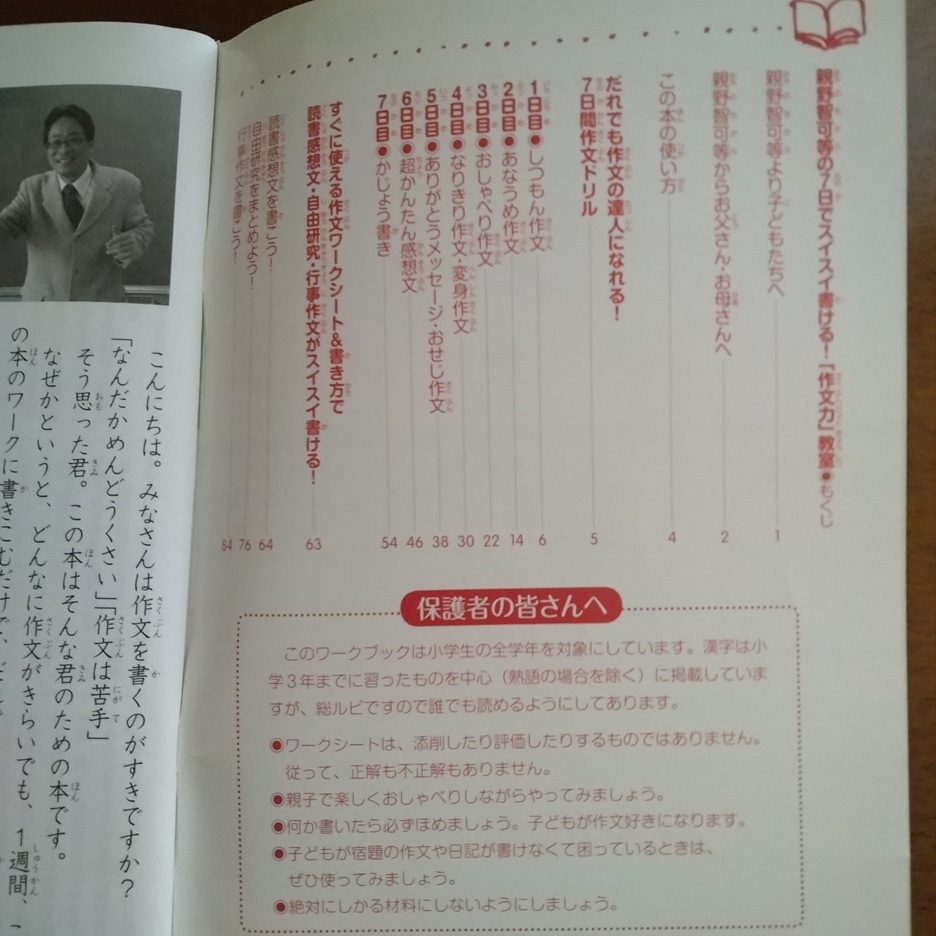 親野智可等の7日でスイスイ書ける!「作文力」教室●もくじ
親野智可等より子どもたちへ 1
親野智可等からお父さん・お母さんへ 2
この本の使い方 4
だれでも作文の達人になれる!
7日間作文ドリル 5
1日目●しつもん作文 6
2日目●あなうめ作文 14
3日目●おしゃべり作文 22
4日目●なりきり作文・変身作文 30
5日目●ありがとうメッセージ・おせじ作文 38
6日目●超かんたん感想文 46
7日目●かじょう書き 54
すぐに使える作文ワークシート&書き方で
読書感想文・自由研究・行事作文がスイスイ書ける! 63
読書感想文を書こう! 64
自由研究をまとめよう! 76
行事作文を書こう! 84
保護者の皆さんへ
このワークブックは小学生の全学年を対象にしています。漢字は小
学3年までに習ったものを中心(熟語の場合を除く)に掲載していま
すが、総ルビですので誰でも読めるようにしてあります。
◉ワークシートは、添削したり評価したりするものではありません。
従って、正解も不正解もありません。
◉親子で楽しくおしゃべりしながらやってみましょう。
◉何か書いたら必ずほめましょう。子どもが作文好きになります。
◉子どもが宿題の作文や日記が書けなくて困っているときは、
ぜひ使ってみましょう。
◉絶対にしかる材料にしないようにしましょう。
こんにちは。みなさんは作文を書くのがすきですか?
「なんだかめんどうくさい」「作文は苦手」
そう思った君。この本はそんな君のための本です。
なぜかというと、どんなに作文がきらいでも、1週間、
の本のワークに書きこむだけで、